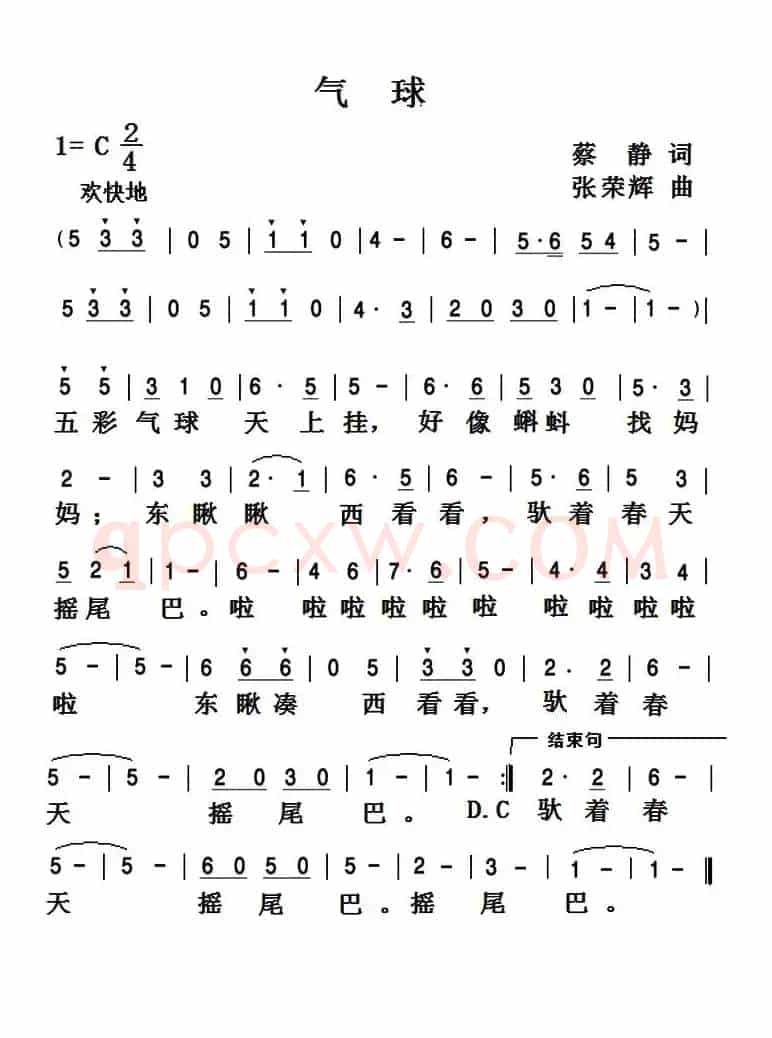 气 球
1= C 2/4
蔡 静 词
欢快地
张荣辉 曲
( 5 3 3 | 0 5 | 1 1 0 | 4 - | 6 - | 5· 6 5 4 | 5 - |
5 3 3 | 0 5 | 1 1 0 | 4· 3 | 2 0 3 0 | 1 - | 1 - ) |
5 5 | 3 1 0 | 6· 5 | 5 - | 6· 6 | 5 3 0 | 5· 3 |
五 彩 气 球 天 上 挂, 好 像 蝌蚪 找 妈
2 - | 3 3 | 2· 1 | 6· 5 | 6 - | 5· 6 | 5 3 |
妈; 东 瞅瞅 西 看 看, 驮 着 春 天
qpcxw.COM
5 2 1 | 1 - | 6 - | 4 6 | 7· 6 | 5 - | 4 4 | 3 4 |
摇尾 巴。啦 啦啦 啦啦 啦 啦 啦啦啦
5 - | 5 - | 6 6 6 | 0 5 | 3 3 0 | 2· 2 | 6 - |
啦 东 瞅凑 西 看看, 驮 着 春
结束句
5 - | 5 - | 2 0 3 0 | 1 - | 1 - :‖ 2· 2 | 6 - |
天 摇 尾 巴。 D.C 驮 着 春
5 - | 5 - | 6 0 5 0 | 5 - | 2 - | 3 - | 1 - | 1 - ‖
天 摇 尾 巴。摇 尾 巴。